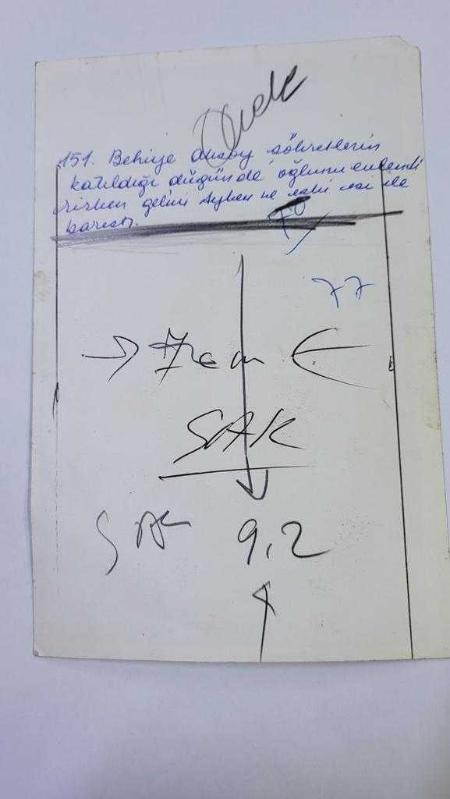 151. Behiye Aksoy şöhretlerin
katıldığı düğünde oğlunu evlendi
rirken gelini Ayhen ve eski eşi ile
barıştı.
77
7 cm
SAK
SAK 9,2